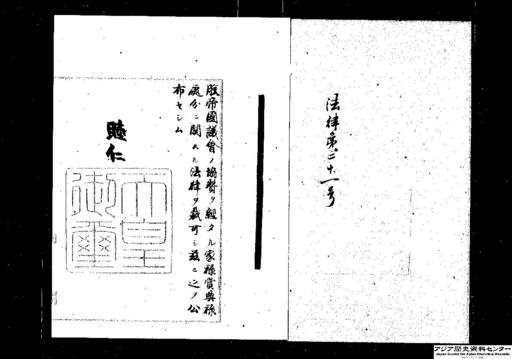 法律第二十一号
朕帝國議會ノ協賛ヲ經タル家禄賞典禄
處分ニ関スル法律ヲ裁可シ茲ニ之ヲ公
布セシム
睦仁
天皇
御璽
アジア歴史資料センター
Japan Center for Asian Historical Records